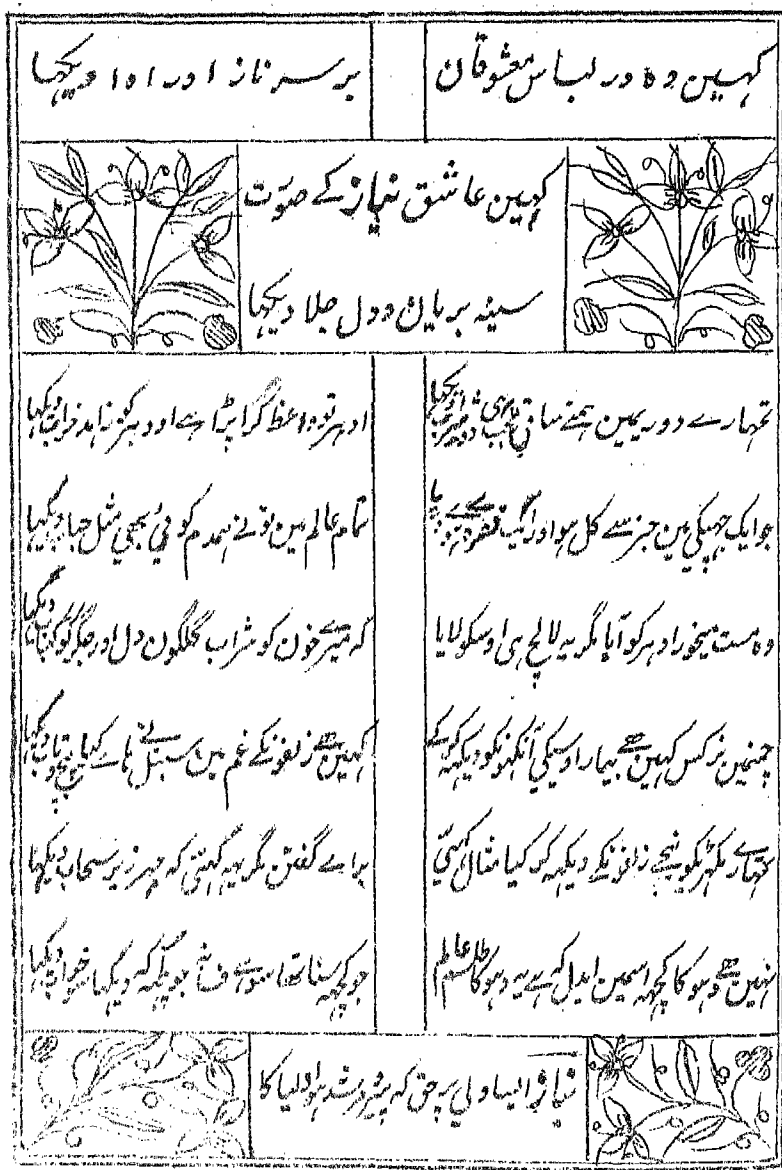 کہین وہ در لباس معشوقان
برسر ناز اور ادا دیکہا
کہین عاشق نیاز کے صورت
سینہ بریان و دل جلا دیکہا
تمہارے دور یمین ہمنے ساقی
ادہر تو واعظ گرا پڑا ہے اودہر کو زاہد خراب دیکہا
جو ایک جہپکی مین جز سے کل ہو اور ایک قطرہ سے
تمام عالم مین تو نے ہمدم کوئی بہی مثل حباب دیکہا
وہ مست میخور ادہر کو آیا مگر یہ لالچ ہی اوسکو لایا
کہ میرے خون کو شراب گلگون دل اور جگر کو کباب دیکہا
چمنمین نرگس کہین ہے بیمار اوسیکی آنکہونکو دیکہہ کر کے
کہین ہے زلفونکے غم مین سنبل نے ہاے کیا پیچ و تاب دیکہا
تمہارے مکہڑیکو نیچے زلفونکے دیکہہ کر کیا مثال کہئی
براے گفتن مگر یہہ کہتی کہ مہر زیر سحاب دیکہا
نہین ہے دہوکا کچہہ اسمین ایدل کہ ہے یہ دہوکا طلسم عالم
جو کچہہ سنا تہا سو ہے فسانہ جو کچہ کہ دیکہا سو خواب دیکہا
نیاز ایسا ولی برحق کہ پیر و مرشد ہو اولیا کا